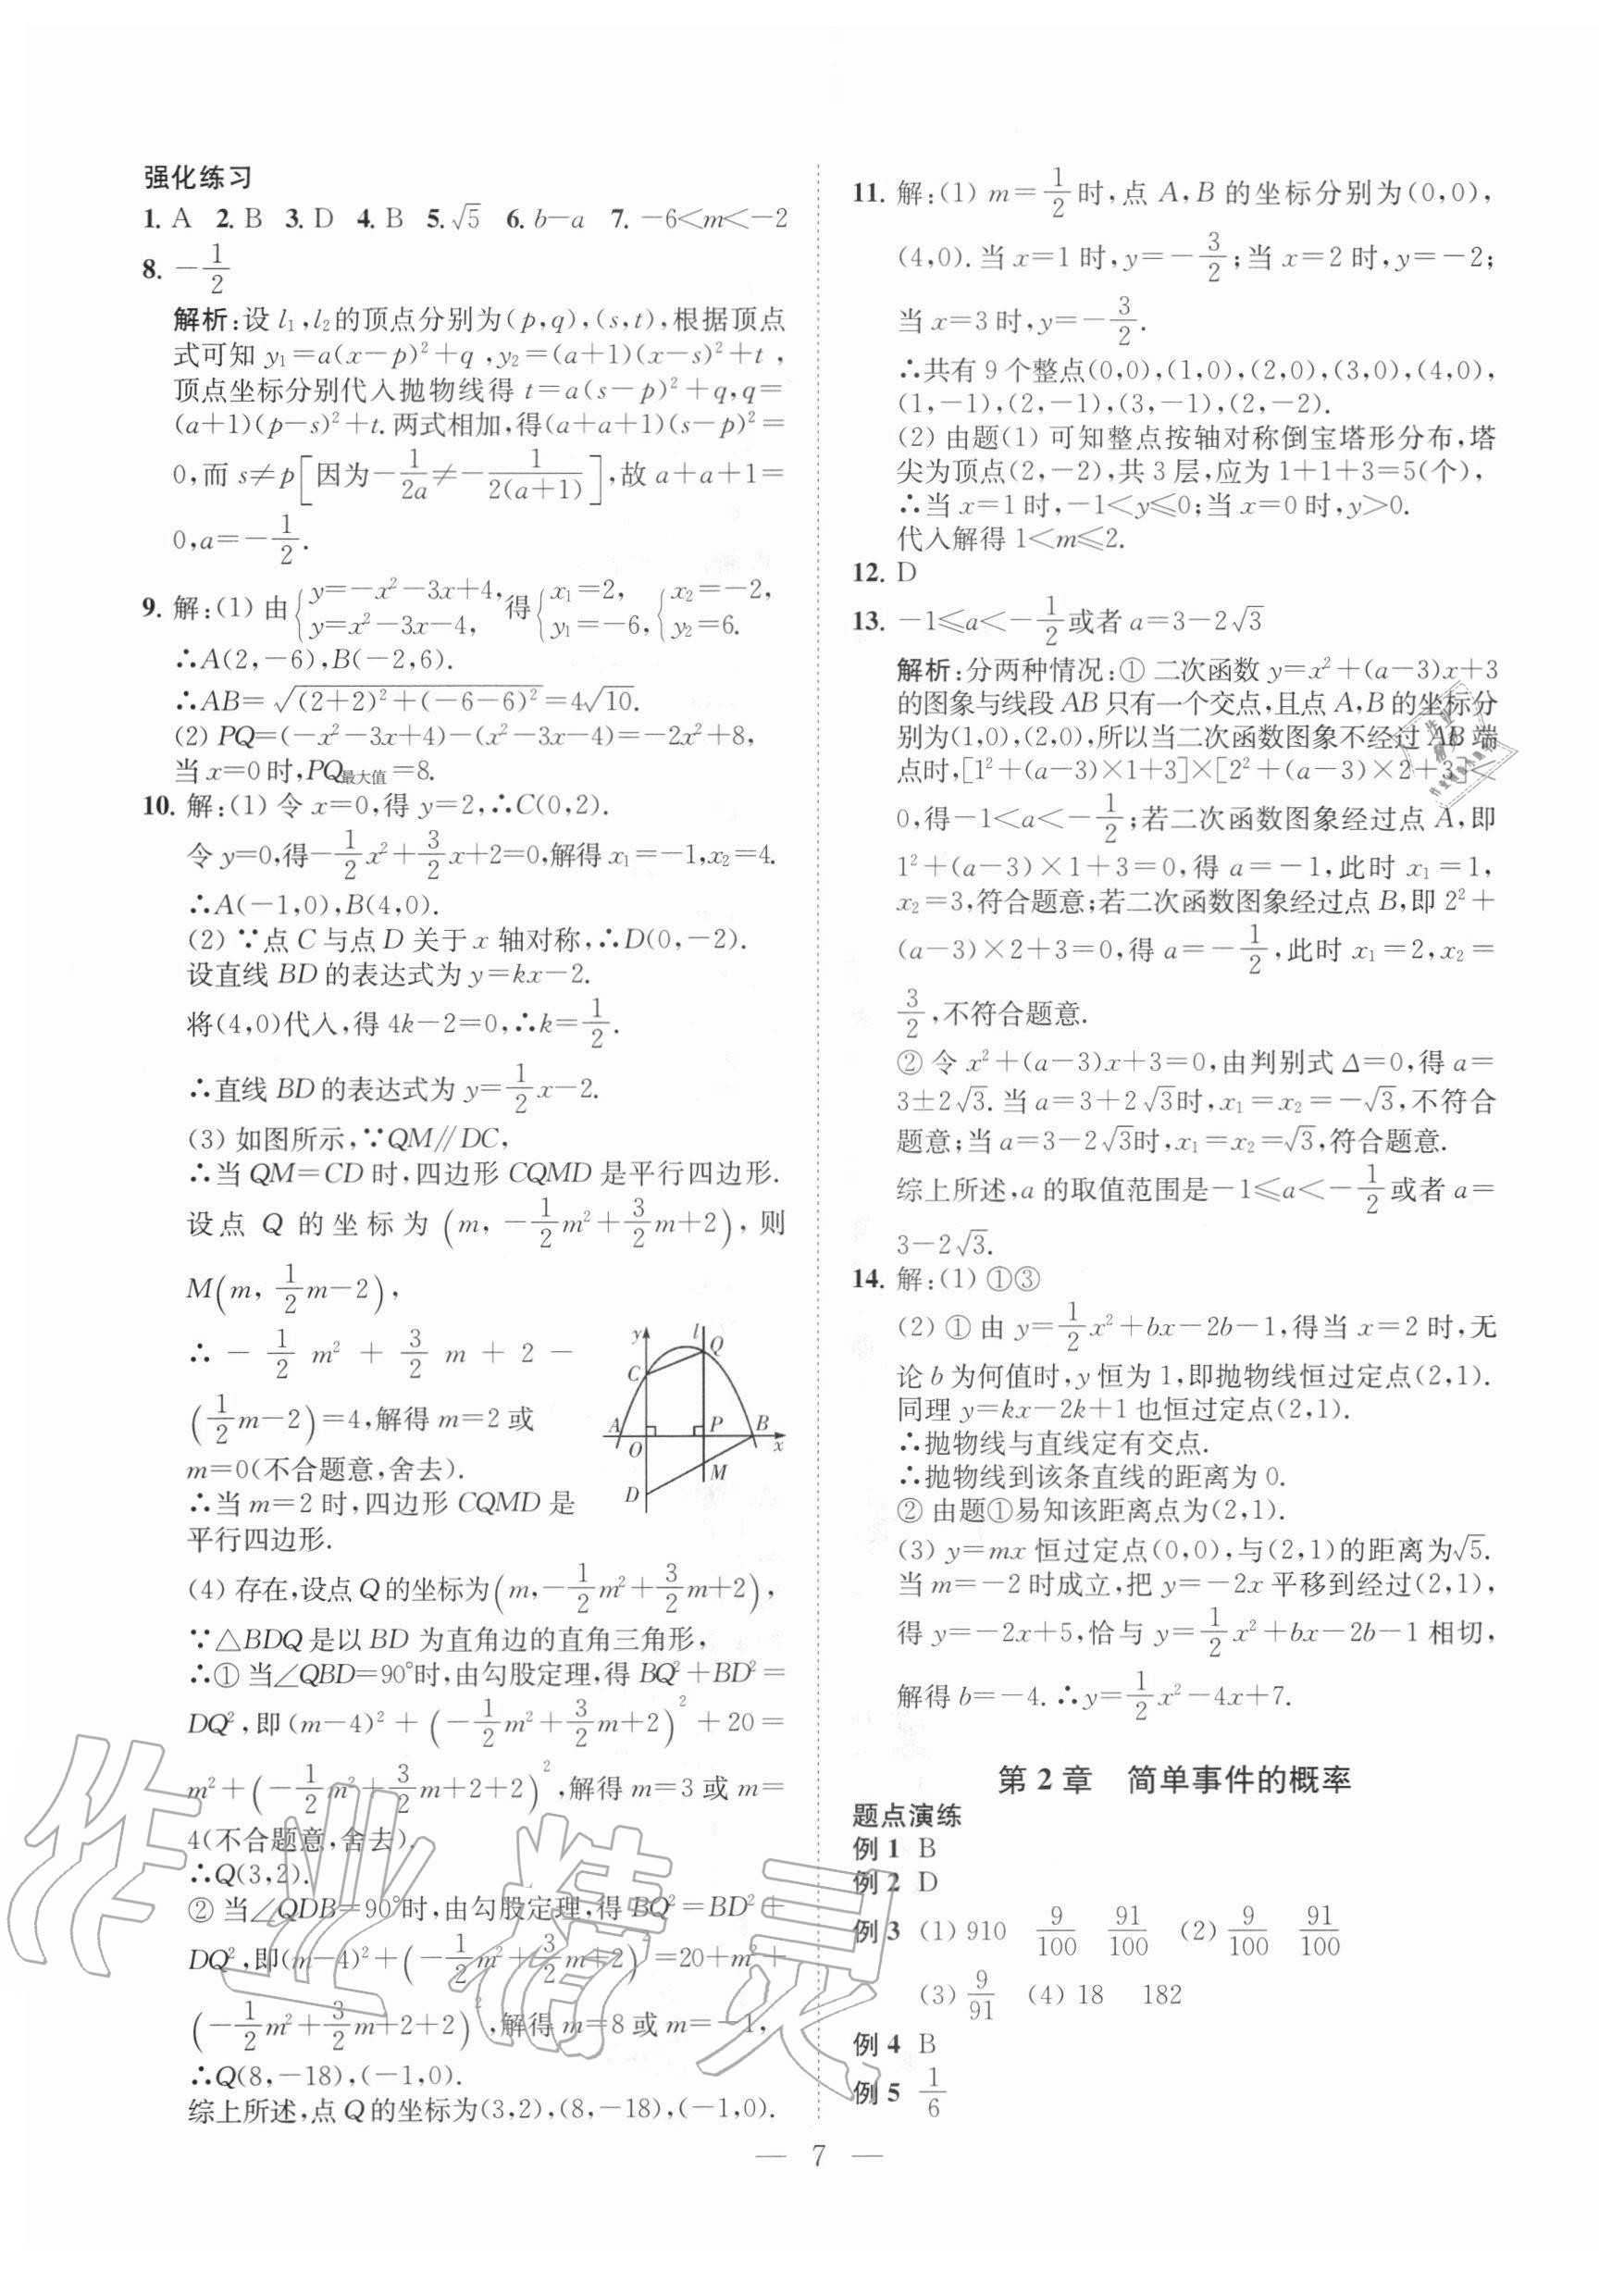 强化练习
1. A 2. B 3. D 4. B 5. √5 6. b－a 7. －6＜m＜－2
8. －1/2
解析:设 l₁,l₂的顶点分别为(p,q),(s,t),根据顶点
式可知 y₁＝a(x－p)²＋q ,y₂＝(a＋1)(x－s)²＋t ,
顶点坐标分别代入抛物线得 t＝a(s－p)²＋q,q＝
(a＋1)(p－s)²＋t.两式相加,得(a＋a＋1)(s－p)²＝
0,而 s≠p[因为－1/2a≠－1/2(a＋1)],故 a＋a＋1＝
0,a＝－1/2.
9. 解:(1) 由{y＝－x²－3x＋4, y＝x²－3x－4, 得{x₁＝2, y₁＝－6, {x₂＝－2, y₂＝6.
∴A(2,－6),B(－2,6).
∴AB＝√((2＋2)²＋(－6－6)²)＝4√10.
(2) PQ＝(－x²－3x＋4)－(x²－3x－4)＝－2x²＋8,
当 x＝0 时,PQ最大值＝8.
10. 解:(1) 令 x＝0,得 y＝2,∴C(0,2).
令 y＝0,得－1/2x²＋3/2x＋2＝0,解得 x₁＝－1,x₂＝4.
∴A(－1,0),B(4,0).
(2) ∵点 C 与点 D 关于 x 轴对称,∴D(0,－2).
设直线 BD 的表达式为 y＝kx－2.
将(4,0)代入,得 4k－2＝0,∴k＝1/2.
∴直线 BD 的表达式为 y＝1/2x－2.
(3) 如图所示,∵QM∥DC,
∴当 QM＝CD 时,四边形 CQMD 是平行四边形.
设点 Q 的坐标为(m,－1/2m²＋3/2m＋2),则
M(m,1/2m－2),
∴－1/2m²＋3/2m＋2－
(1/2m－2)＝4,解得 m＝2 或
m＝0(不合题意,舍去).
∴当 m＝2 时,四边形 CQMD 是
平行四边形.
y l Q C A P B O x M D
(4) 存在,设点 Q 的坐标为(m,－1/2m²＋3/2m＋2),
∵△BDQ 是以 BD 为直角边的直角三角形,
∴① 当∠QBD＝90°时,由勾股定理,得 BQ²＋BD²＝
DQ²,即(m－4)²＋(－1/2m²＋3/2m＋2)²＋20＝
m²＋(－1/2m²＋3/2m＋2＋2)²,解得 m＝3 或 m＝
4(不合题意,舍去).
∴Q(3,2).
② 当∠QDB＝90°时,由勾股定理,得 BQ²＝BD²＋
DQ²,即(m－4)²＋(－1/2m²＋3/2m＋2)²＝20＋m²＋
(－1/2m²＋3/2m＋2＋2)²,解得 m＝8 或 m＝－1,
∴Q(8,－18),(－1,0).
综上所述,点 Q 的坐标为(3,2),(8,－18),(－1,0).
11. 解:(1) m＝1/2时,点 A,B 的坐标分别为(0,0),
(4,0).当 x＝1 时,y＝－3/2;当 x＝2 时,y＝－2;
当 x＝3 时,y＝－3/2.
∴共有 9 个整点(0,0),(1,0),(2,0),(3,0),(4,0),
(1,－1),(2,－1),(3,－1),(2,－2).
(2) 由题(1) 可知整点按轴对称倒宝塔形分布,塔
尖为顶点(2,－2),共 3 层,应为 1＋1＋3＝5(个),
∴当 x＝1 时,－1＜y≤0;当 x＝0 时,y＞0.
代入解得 1＜m≤2.
12. D
13. －1≤a＜－1/2或者 a＝3－2√3
解析:分两种情况:① 二次函数 y＝x²＋(a－3)x＋3
的图象与线段 AB 只有一个交点,且点 A,B 的坐标分
别为(1,0),(2,0),所以当二次函数图象不经过 AB 端
点时,[1²＋(a－3)×1＋3]×[2²＋(a－3)×2＋3]＜
0,得－1＜a＜－1/2;若二次函数图象经过点 A,即
1²＋(a－3)×1＋3＝0,得 a＝－1,此时 x₁＝1,
x₂＝3,符合题意;若二次函数图象经过点 B,即 2²＋
(a－3)×2＋3＝0,得 a＝－1/2,此时 x₁＝2,x₂＝
3/2,不符合题意.
② 令 x²＋(a－3)x＋3＝0,由判别式 Δ＝0,得 a＝
3±2√3. 当 a＝3＋2√3时,x₁＝x₂＝－√3,不符合
题意;当 a＝3－2√3时,x₁＝x₂＝√3,符合题意.
综上所述,a 的取值范围是－1≤a＜－1/2或者 a＝
3－2√3.
14. 解:(1) ①③
(2) ① 由 y＝1/2x²＋bx－2b－1,得当 x＝2 时,无
论 b 为何值时,y 恒为 1,即抛物线恒过定点(2,1).
同理 y＝kx－2k＋1 也恒过定点(2,1).
∴抛物线与直线定有交点.
∴抛物线到该条直线的距离为 0.
② 由题①易知该距离点为(2,1).
(3) y＝mx 恒过定点(0,0),与(2,1)的距离为√5.
当 m＝－2 时成立,把 y＝－2x 平移到经过(2,1),
得 y＝－2x＋5,恰与 y＝1/2x²＋bx－2b－1 相切,
解得 b＝－4. ∴y＝1/2x²－4x＋7.
第 2 章 简单事件的概率
题点演练
例 1 B
例 2 D
例 3 (1) 910 9/100 91/100 (2) 9/100 91/100
(3) 9/91 (4) 18 182
例 4 B
例 5 1/6
— 7 —
作业精灵